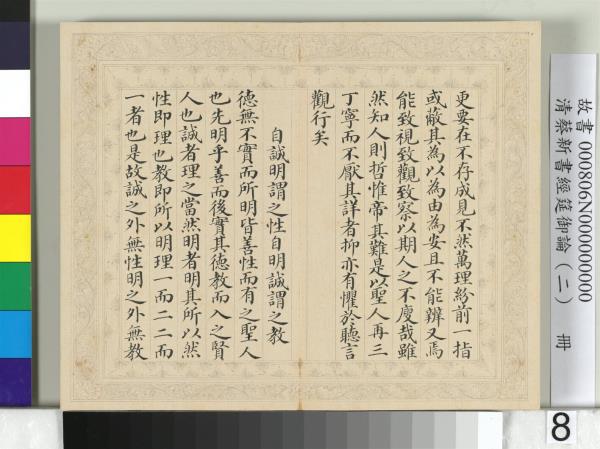 更要在不存成見不然萬理紛前一指
或蔽其為以為由為安且不能辨又焉
能致視致觀致察以期人之不廋哉雖
然知人則哲惟帝其難是以聖人再三
丁寧而不厭其詳者抑亦有懼於聽言
觀行矣
自誠明謂之性自明誠謂之教
德無不實而所明皆善性而有之聖人
也先明乎善而後實其德教而入之賢
人也誠者理之當然明者明其所以然
性即理也教即所以明理一而二二而
一者也是故誠之外無性明之外無教
故書 000806N000000000
清蔡新書經筵御論(二) 冊
8